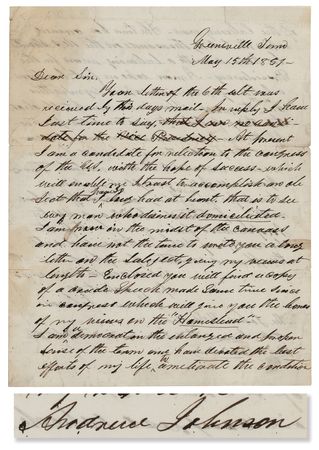 Greenville Tenn
May 15th 1851-
Dear Sir,
Your letter of the 6th ult was
received by this days mail - In reply I have
Just time to say, that I am no candi-
date for the Vice Presidency - At present
I am a candidate for reelection to the congress
of the US, with the hope of success - which
will enable me I trust to accomplish an ob
ject that I have long had at heart, that is to see
every man domiciled -
I am now in the midst of the canvass
and have not the time to write you a long
letter on the subject, giving my views at
length - Enclosed you will find a copy
of a speech made Some time since
in congress which will give you the
of my views on the "Homestead" -
I am a democrat in the enlarged and proper
sense of the term and have devoted the best
efforts of my life to ameliorate the condition
Andrew Johnson